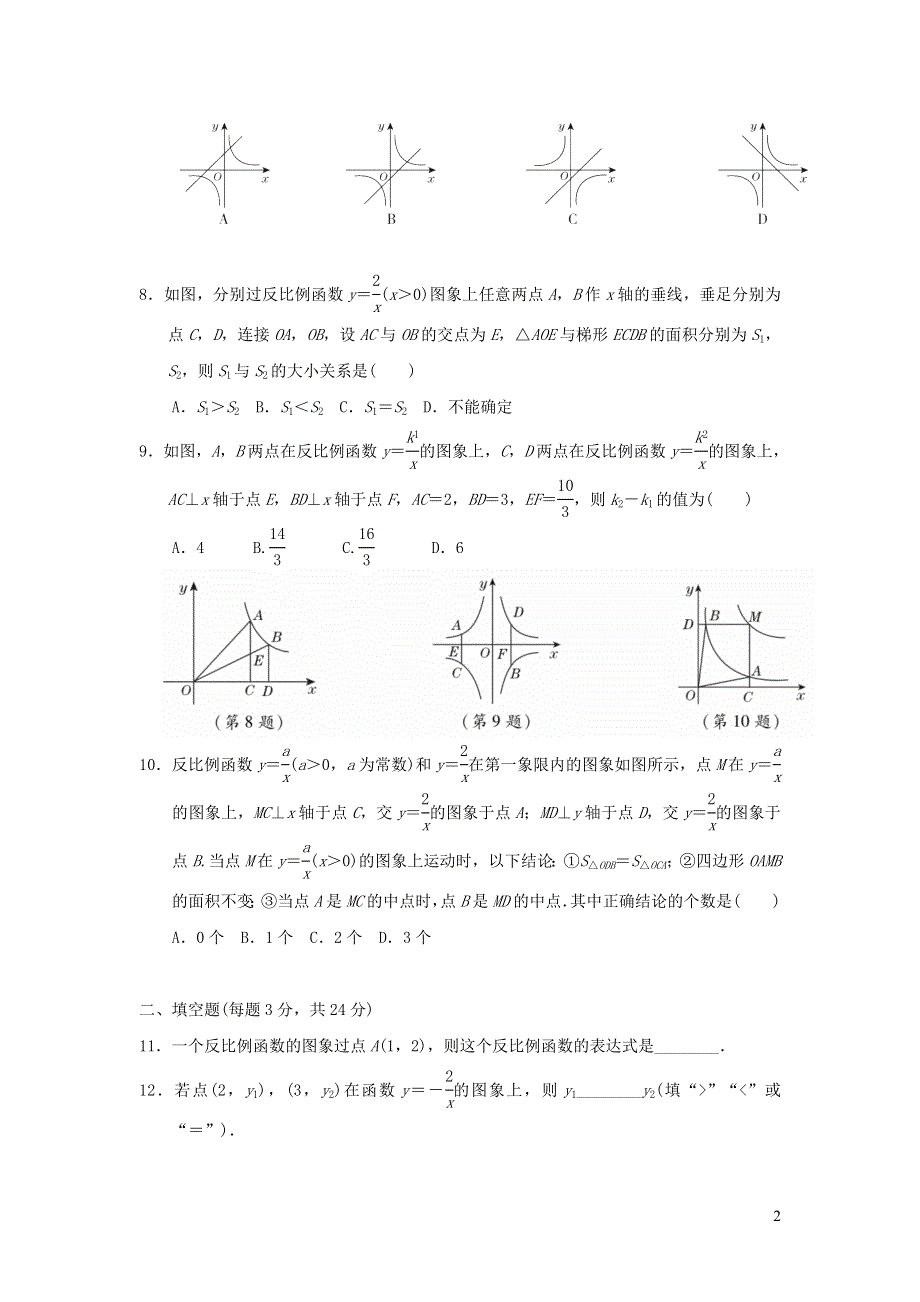 y y y y
O x O x O x O x
A B C D
8．如图，分别过反比例函数 y＝2/x(x＞0)图象上任意两点 A，B 作 x 轴的垂线，垂足分别为
点 C，D，连接 OA，OB，设 AC 与 OB 的交点为 E，△AOE 与梯形 ECDB 的面积分别为 S₁，
S₂，则 S₁与 S₂的大小关系是(　　)
A．S₁＞S₂ B．S₁＜S₂ C．S₁＝S₂ D．不能确定
9．如图，A，B 两点在反比例函数 y＝k1/x的图象上，C，D 两点在反比例函数 y＝k2/x的图象上，
AC⊥x 轴于点 E，BD⊥x 轴于点 F，AC＝2，BD＝3，EF＝10/3，则 k₂－k₁的值为(　　)
A．4 B.14/3 C.16/3 D．6
y A B E O C D x
y A D E O F x C B
y D B M A O C x
(第 8 题) (第 9 题) (第 10 题)
10．反比例函数 y＝a/x(a＞0，a 为常数)和 y＝2/x在第一象限内的图象如图所示，点 M 在 y＝a/x
的图象上，MC⊥x 轴于点 C，交 y＝2/x的图象于点 A；MD⊥y 轴于点 D，交 y＝2/x的图象于
点 B.当点 M 在 y＝a/x(x＞0)的图象上运动时，以下结论：①S△ODB＝S△OCA；②四边形 OAMB
的面积不变；③当点 A 是 MC 的中点时，点 B 是 MD 的中点.其中正确结论的个数是(　　)
A．0 个 B．1 个 C．2 个 D．3 个
二、填空题(每题 3 分，共 24 分)
11．一个反比例函数的图象过点 A(1，2)，则这个反比例函数的表达式是________．
12．若点(2，y₁)，(3，y₂)在函数 y＝－2/x的图象上，则 y₁________y₂(填“>”“<”或
“＝”)．
2